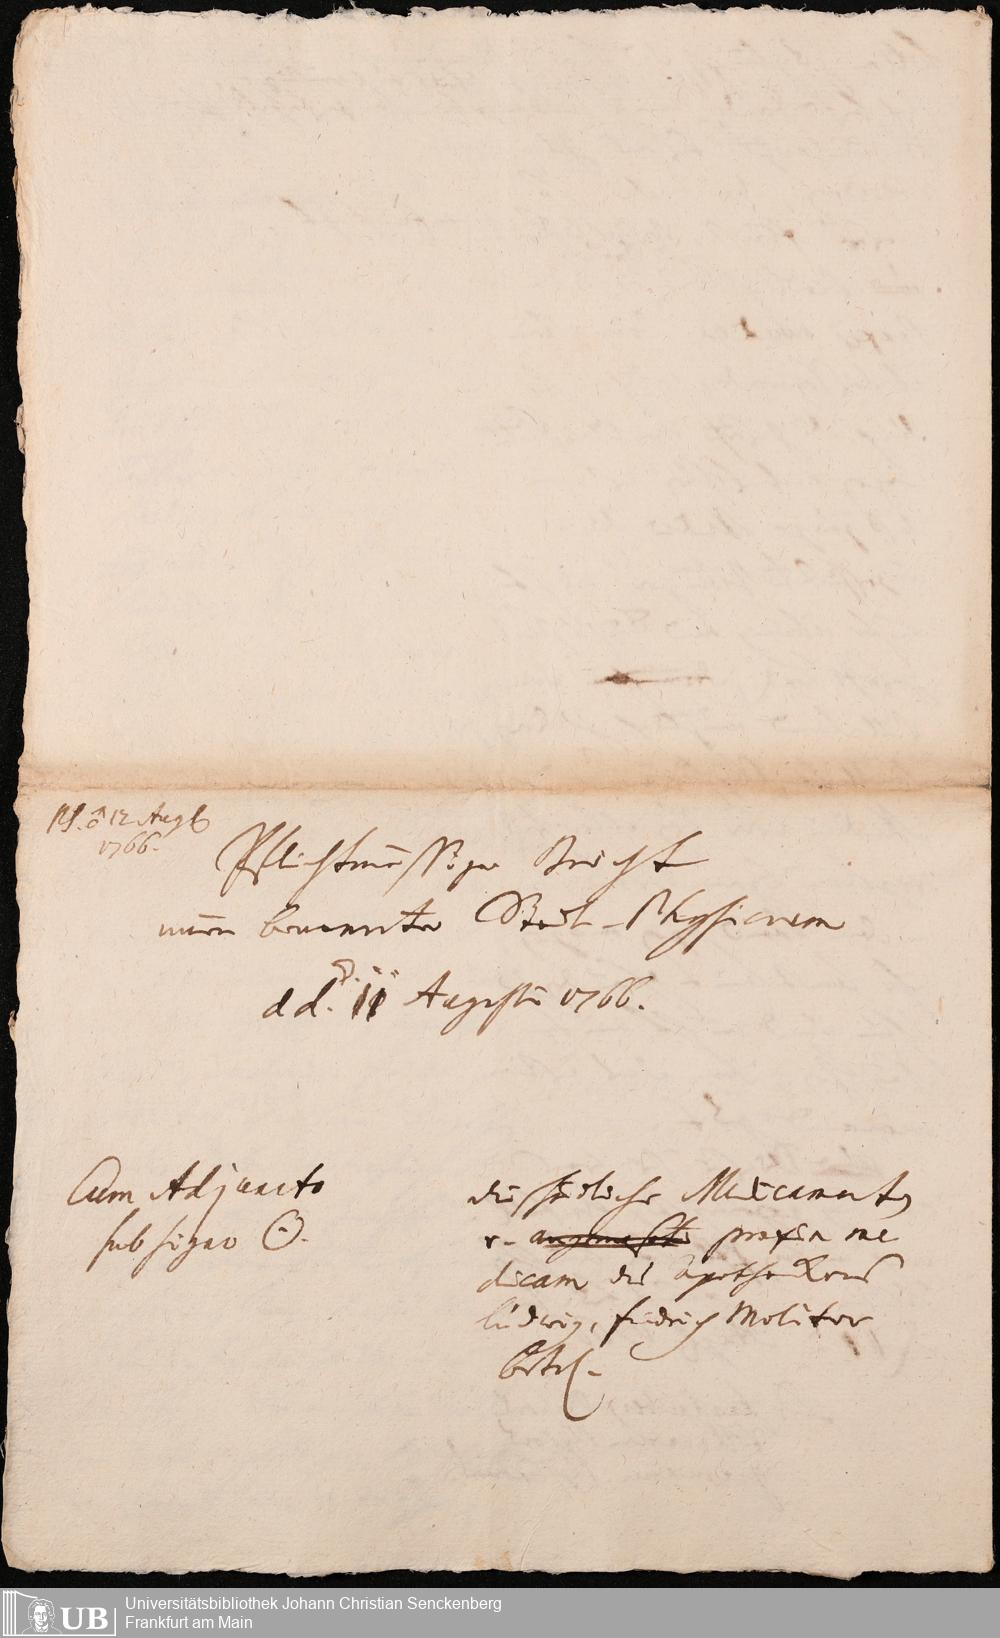 12 Augt
1766.
Pflichtmässiger Bericht
benannter Stadt-Physicorum
dd. 11 Augusti 1766.
Cum Adjuncto
sub signo ⊙.
die schädliche Medicamenta
praxin me
dicam des Apotheckers
Ludwig, Friedrich Molitor
betr.
UB
Universitätsbibliothek Johann Christian Senckenberg
Frankfurt am Main